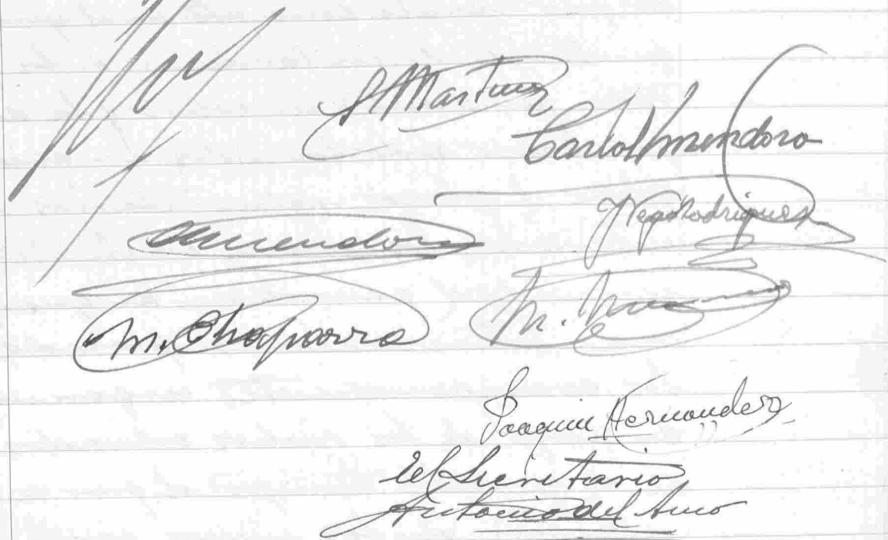 Martinez
Carlos Mendoza
Vega Rodriguez
Mendoza
M. Chaparro
M.
Joaquin Hernandez
El Secretario
Antonio del Amo